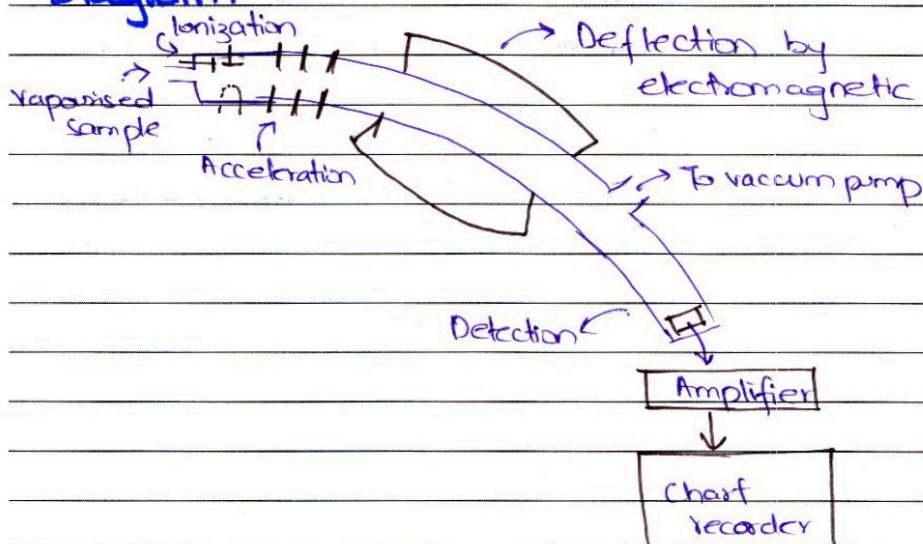 Diagram
Ionization
Deflection by
electromagnetic
vapourised
sample
Acceleration
To vaccum pump
Detection
Amplifier
Chart
recorder